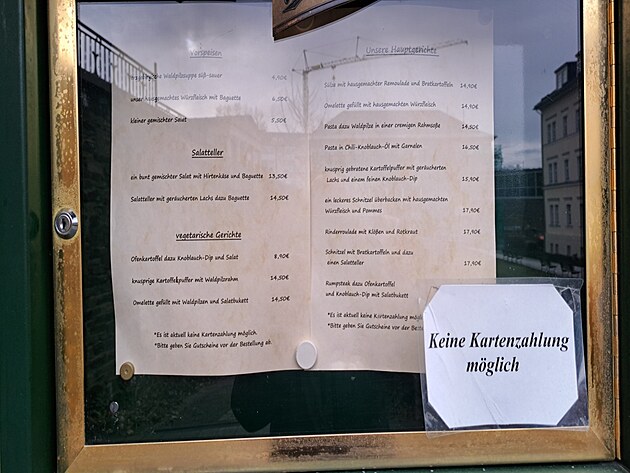 Vorspeisen
Waldpilzsuppe süß-sauer 4,90€
hausgemachtes Würzfleisch mit Baguette 6,00€
kleiner gemischter Salat 5,50€
Salatteller
ein bunt gemischter Salat mit Hirtenkäse und Baguette 13,50€
Salatteller mit geräucherten Lachs dazu Baguette 14,50€
vegetarische Gerichte
Ofenkartoffel dazu Knoblauch-Dip und Salat 8,90€
knusprige Kartoffelpuffer mit Waldpilzrahm 14,50€
Omelette gefüllt mit Waldpilzen und Salatbukett 14,50€
*Es ist aktuell keine Kartenzahlung möglich.
*Bitte geben Sie Gutscheine vor der Bestellung ab.
Unsere Hauptgerichte
Sülze mit hausgemachter Remoulade und Bratkartoffeln 14,90€
Omelette gefüllt mit hausgemachten Würzfleisch 14,90€
Pasta dazu Waldpilze in einer cremigen Rahmsoße 14,50€
Pasta in Chili-Knoblauch-Öl mit Garnelen 16,50€
knusprig gebratene Kartoffelpuffer mit geräucherten
Lachs und einem feinen Knoblauch-Dip 15,90€
ein leckeres Schnitzel überbacken mit hausgemachten
Würzfleisch und Pommes 17,90€
Rinderroulade mit Klößen und Rotkraut 17,90€
Schnitzel mit Bratkartoffeln und dazu
einen Salatteller 17,90€
Rumpsteak dazu Ofenkartoffel
und Knoblauch-Dip mit Salatbukett
*Es ist aktuell keine Kartenzahlung mög
*Bitte geben Sie Gutscheine vor der Best
Keine Kartenzahlung
möglich